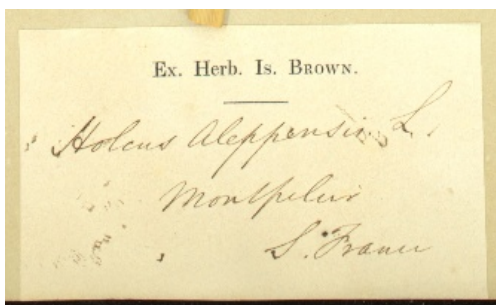 Ex. Herb. Is. Brown.
Holcus Aleppensis L.
Montpelier
S. France